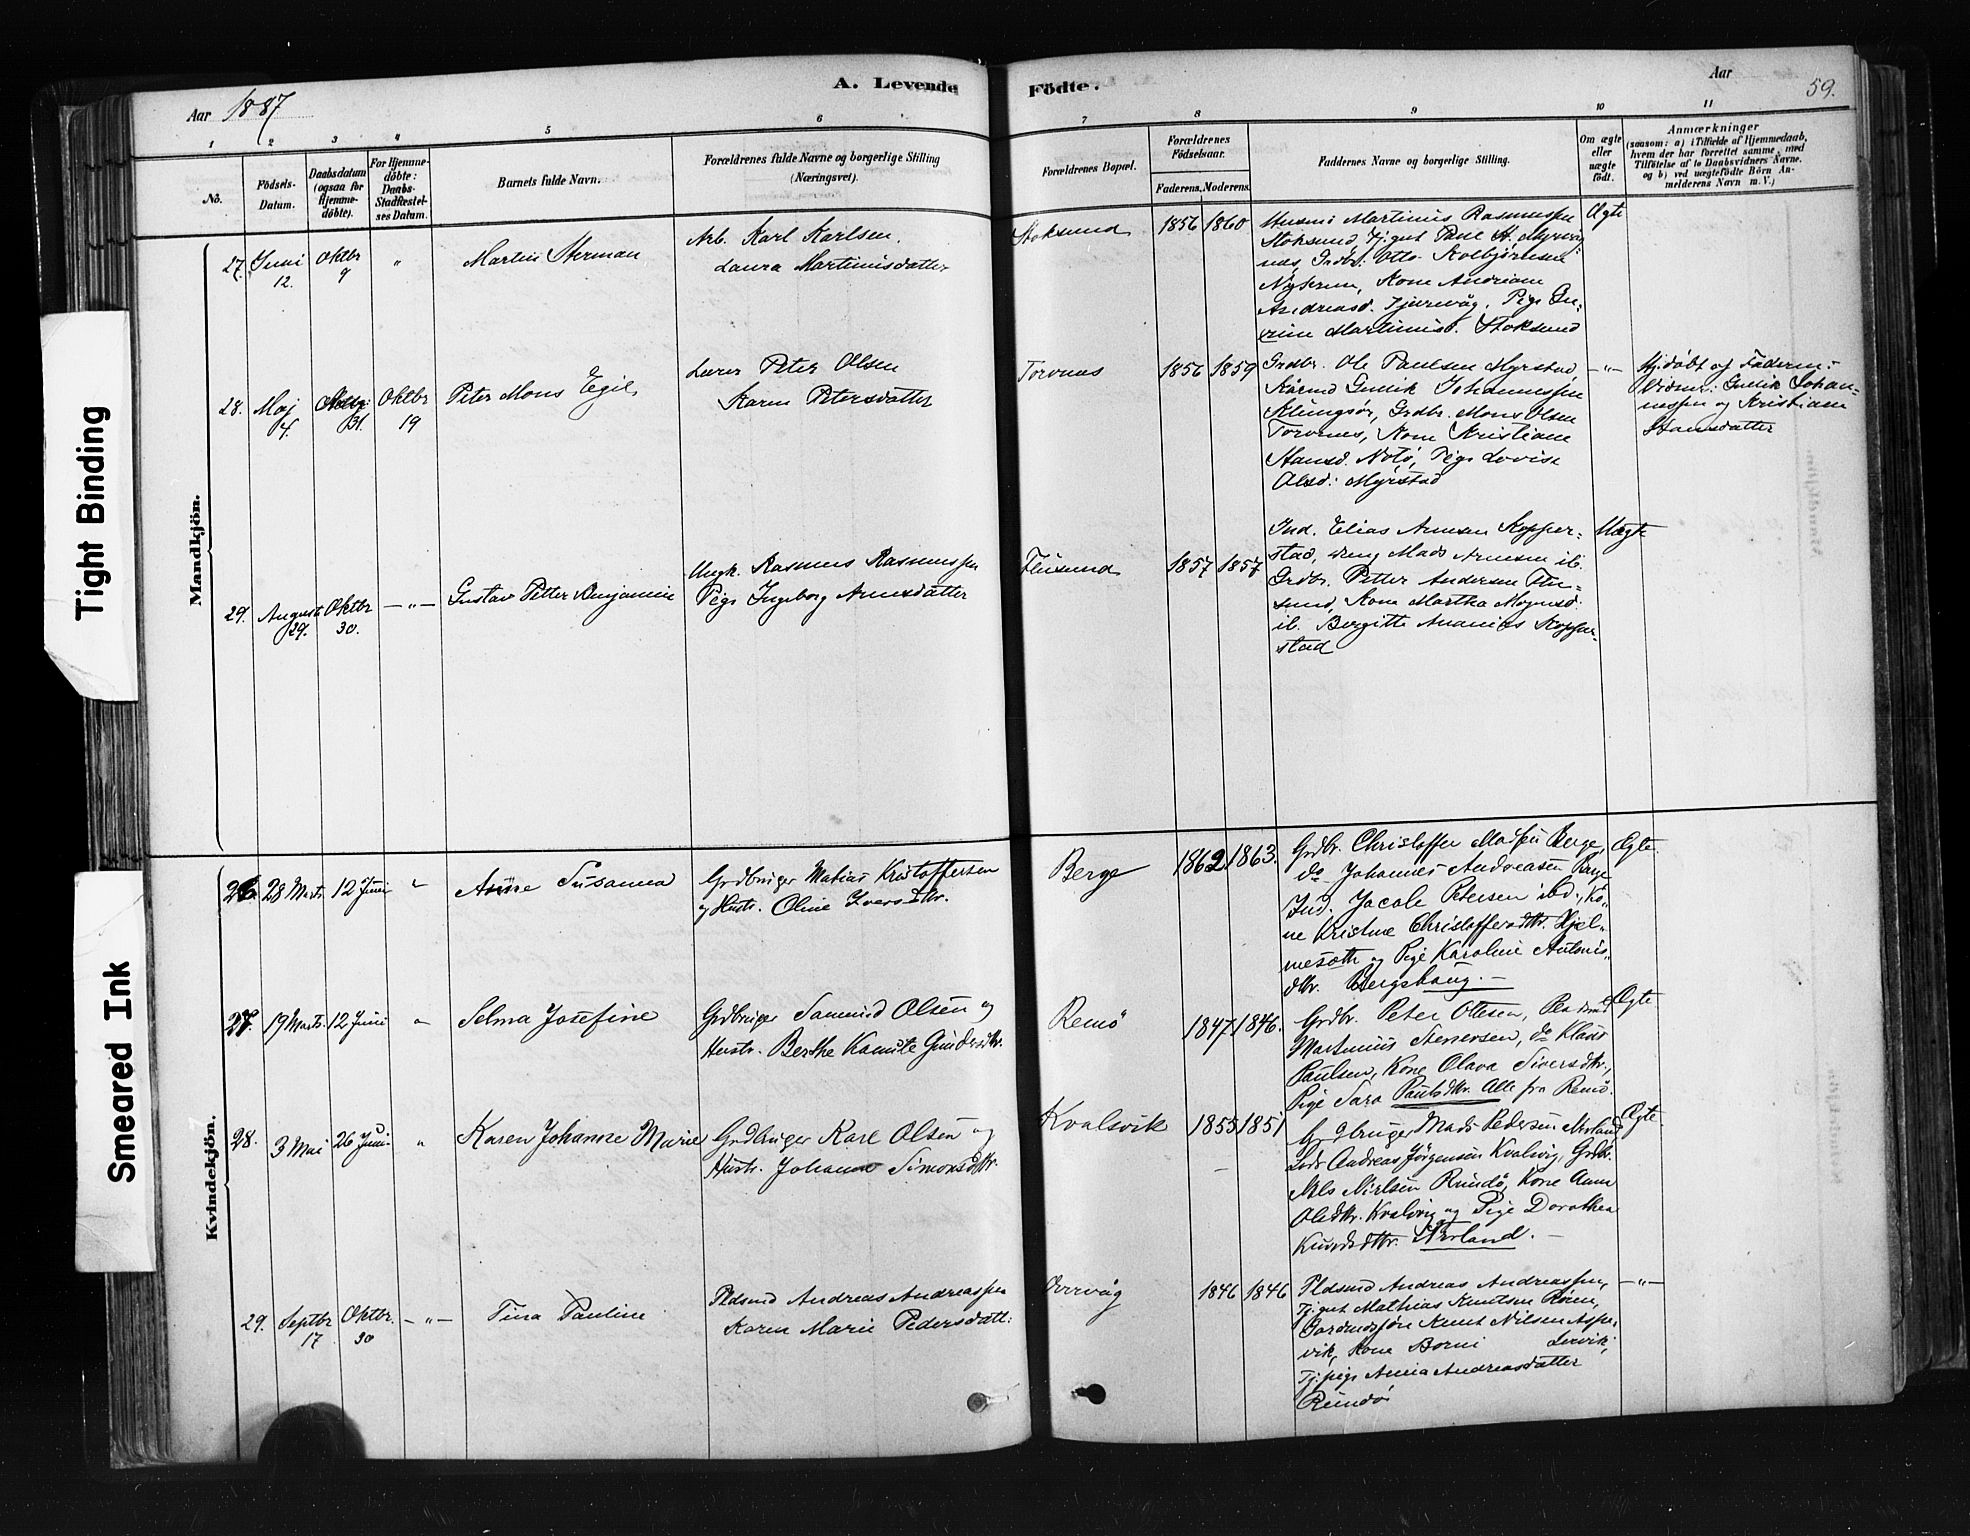 Tight Binding
Smeared Ink
Aar 1887
A. Levende
Födte.
Aar
59.
1
2
3
4
5
6
7
8
9
10
11
No.
Födsels-
Datum.
Daabsdatum
(ogsaa for
Hjemme-
döbte).
For Hjemme-
döbte:
Daabs-
Stadfæstel-
ses Datum.
Barnets fulde Navn.
Forældrenes fulde Navne og borgerlige Stilling
(Næringsvei).
Forældrenes Bopæl.
Forældrenes
Födselsaar.
Faderens.
Moderens.
Faddernes Navne og borgerlige Stilling.
Om ægte
eller
uægte
födt.
Anmærkninger
(saasom: a) i Tilfælde af Hjemmedaab,
hvem der har forrettet samme, med
Tilföielse af to Daabsvidners Navne.
og b) ved uægtefödte Börn An-
melderens Navn m. V.)
Mandkjön.
27. Juni
12.
Oktbr
9
"
Martin Herman
Arb. Karl Karlsen,
Laura Martinusdatter
Stoksund
1856 1860
Husm: Martinus Rasmussen
Stoksund, Tj.gut Paul A. Myrvåg-
næs, Grdbr. Otto Kolbjörnsen
Kone Andriane
Andreasd. Tjurvåg, Pige
Martinusd. Stoksund
Ægte
28. Maj
4.
31.
Oktbr
19
Peter Mons Egil
Lærer Peter Olsen
Karen Petersdatter
Torvnæs
1856 1859
Grdbr. Ole Paulsen Myrstad
Gullik Johannessen
Klungsör, Grdbr. Mons Olsen
Torvnes, Kone Kristiane
Hansd. Notö, Pige Lovise
Olsd: Myrstad
— " —
Hj.døbt af Faderen:
Vidner: Gullik Johan-
nessen og Kristiane
Hansdatter
29. August
29.
Oktbr
30.
— " —
Gustav Petter Benjamin
Ungk. Rasmus Rasmussen
Pige Ingeborg Arnesdatter
Flusund
1857 1857
Ind. Elias Arnesen Kopper-
stad, dreng Mads Arnesen ib.
Grdbr. Petter Andersen Flu-
sund, Kone Martha Mognsd.
ib. Bergitte Ananias Kopper-
stad
Uægte
Kvindekjön.
26. 28 Marts 12 Juni "
Anne Susanna
Grdbruger Matias Kristoffersen
og Hustr. Oline Iversdtr.
Berge
1862 1863.
Grdbr. Christoffer Madsen Berge,
do Johannes Andreasen Berge
Ind. Jacob Petersen ibd., Ko-
ne Kristine Christoffersdtr. Hjel-
mesæth og Pige Karoline Antonis-
dtr. Bergshaug. —
Ægte.
27. 19 Marts. 12 Juni "
Selma Josefine
Grdbruger Samund Olsen og
Hustr. Berthe Kamile Gundersdtr.
Remö
1847. 1846.
Grdbr. Peter Ottesen,
Martinius Stenersen, do Klaus
Paulsen, Kone Olava Siversdtr.,
Pige Sara Paulsdtr. Alle fra Remö.
Ægte
28. 3 Mai 26 Juni "
Karen Johanne Marie
Grdbruger Karl Olsen og
Hustr. Johanne Simonsdtr.
Kvalsvik
1855 1851
Grdbruger Mads Pedersen Nerland
Lods Andreas Jörgensen Kvalsvig, Grdbr.
Nils Nielsen Rundö, Kone Anne
Olsdtr. Kvalsvig og Pige Dorothea
Knudsdtr. Nerland. —
Ægte
29. Septbr
17
Oktbr.
30
— " —
Tina Pauline
Pldsmd Andreas Andreassen
Karen Marie Pedersdatt:
1846 1846
Pldsmd Andreas Andreassen,
Tj.gut Mathias Knutsen
Knut Nilsen Aspe-
vik, Kone Borni Lervik,
Tj.pige Anna Andreasdatter
Rundö
— " —